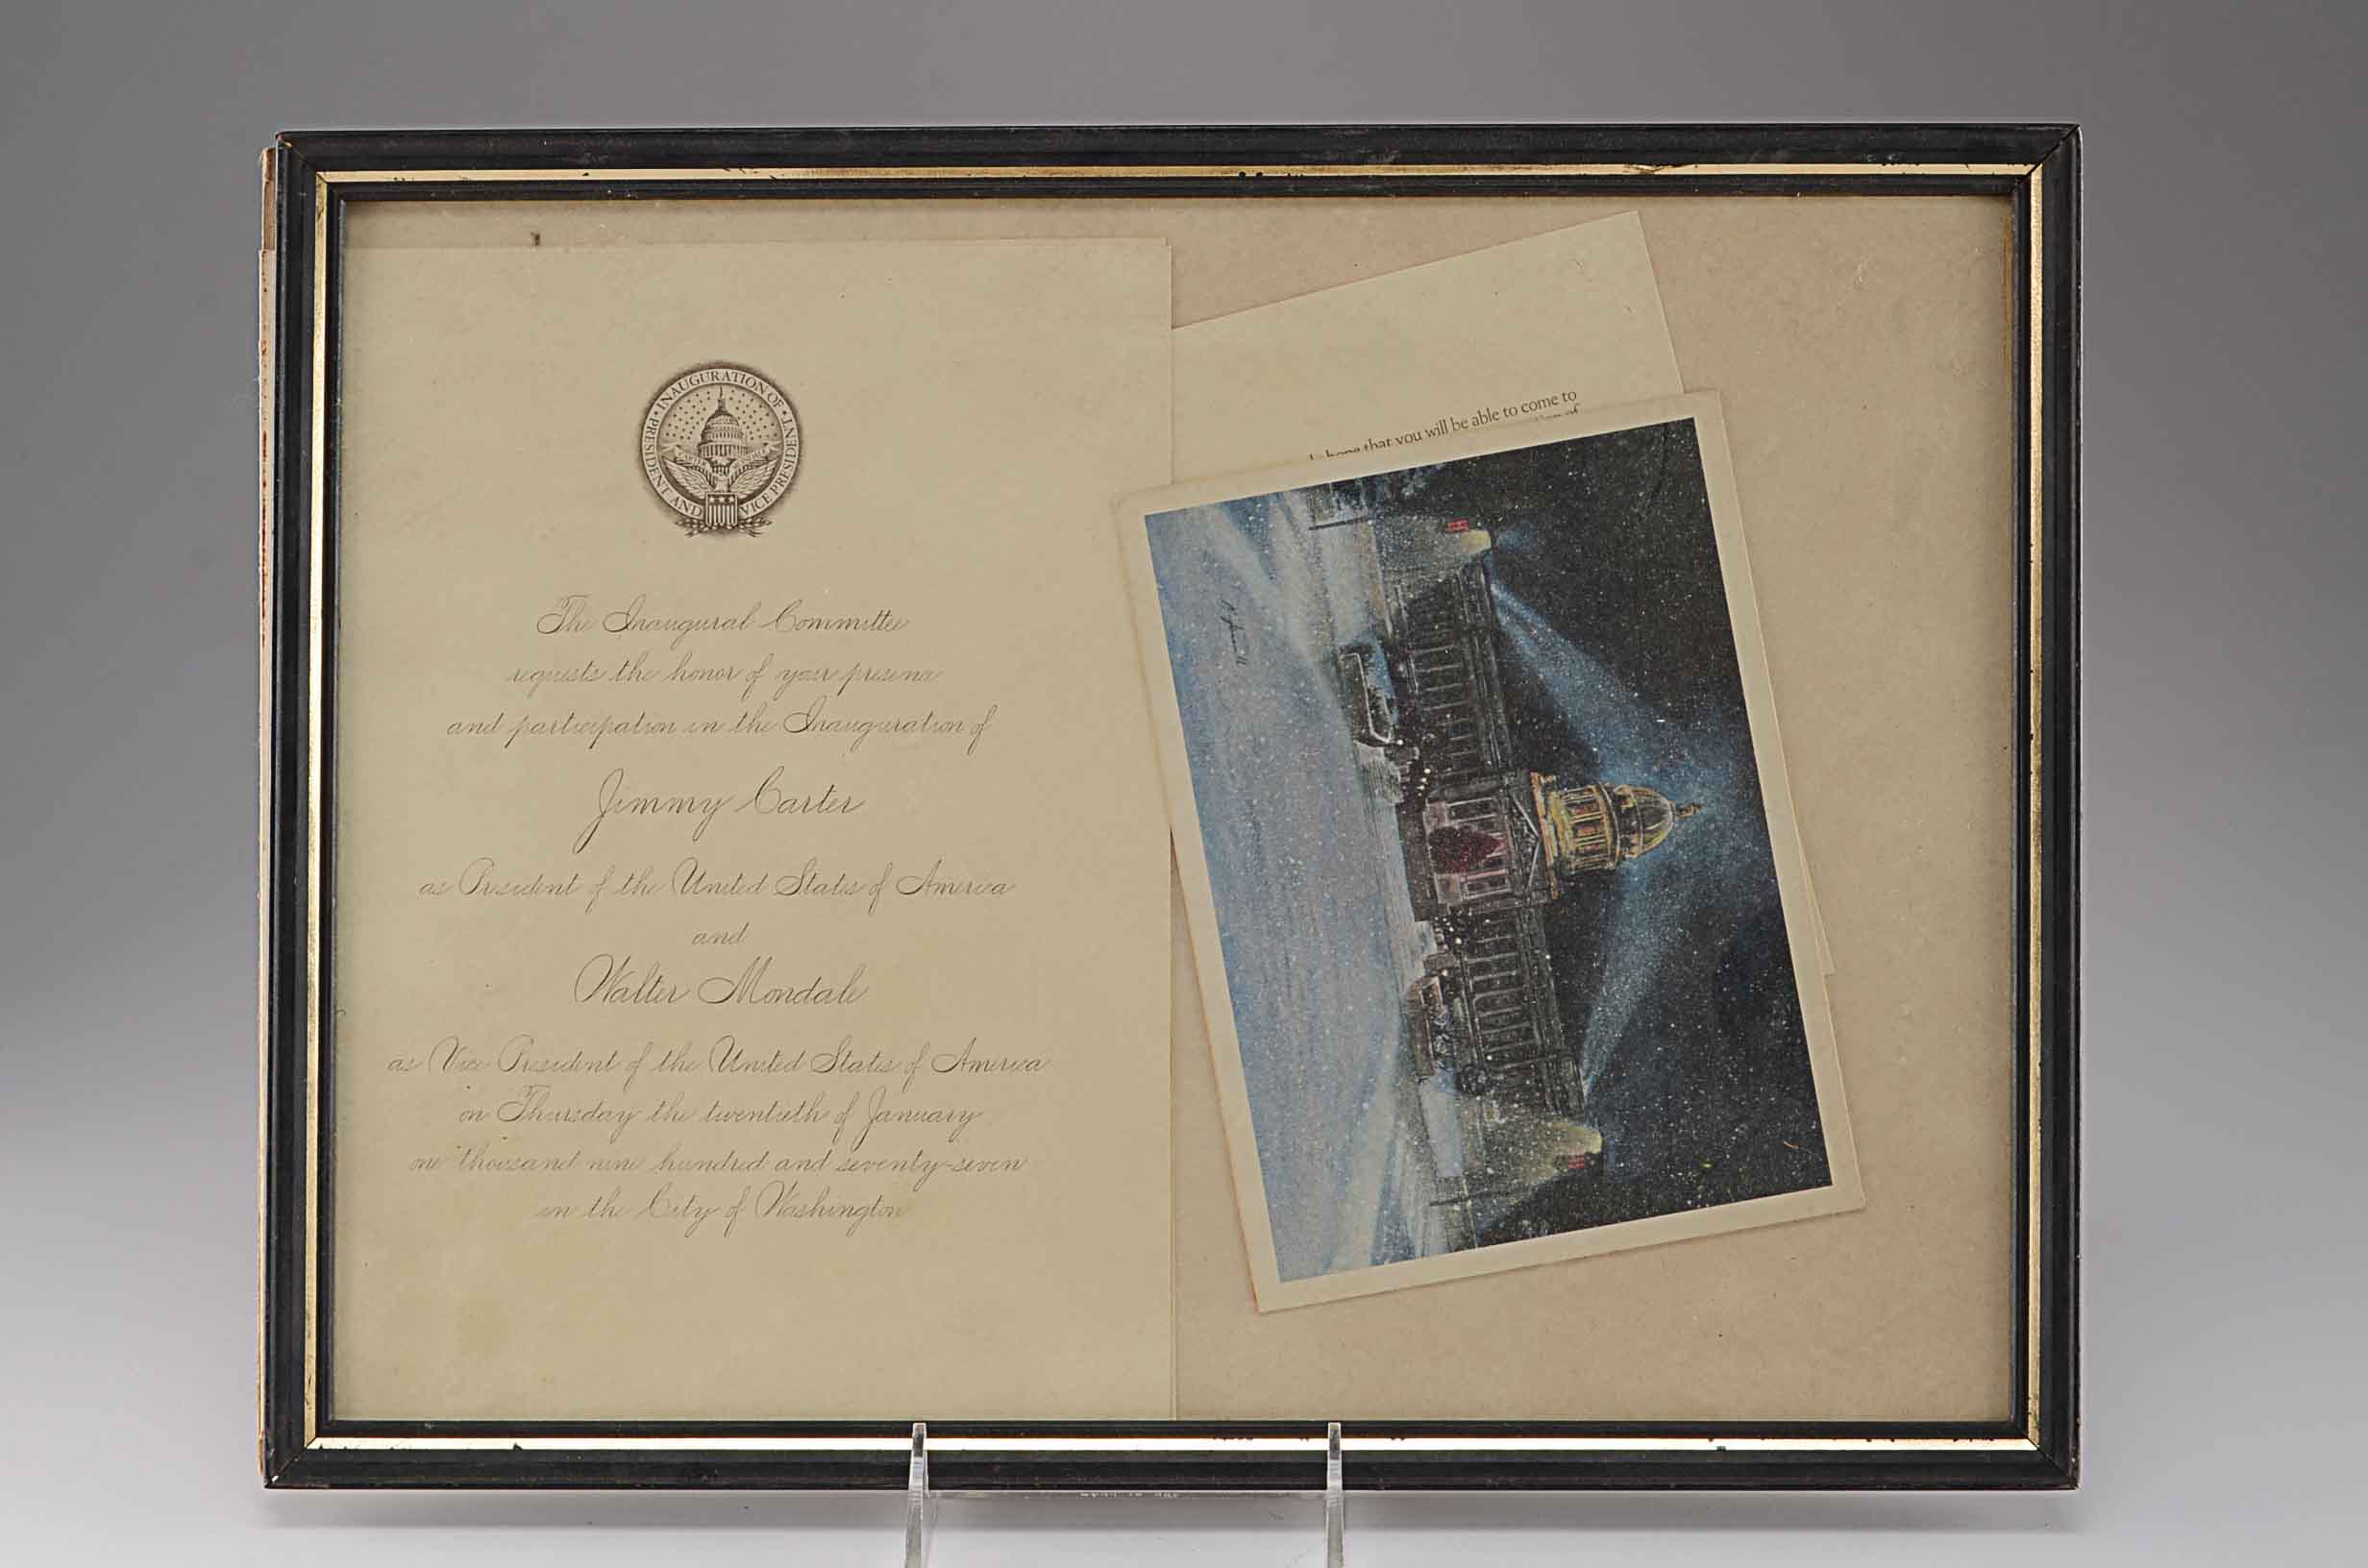 INAUGURATION OF PRESIDENT AND VICE PRESIDENT
The Inaugural Committee
requests the honor of your presence
and participation in the Inauguration of
Jimmy Carter
as President of the United States of America
and
Walter Mondale
as Vice President of the United States of America
on Thursday the twentieth of January
one thousand nine hundred and seventy-seven
in the City of Washington
hope that you will be able to come to
of